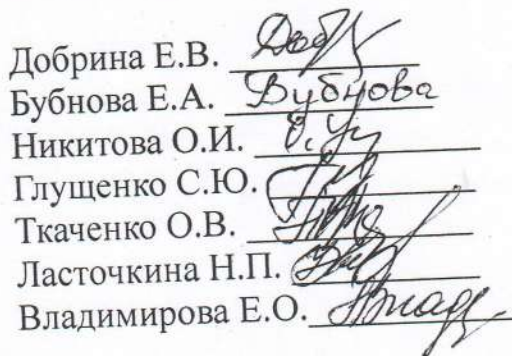 Добрина Е.В. Доб
Бубнова Е.А. Бубнова
Никитова О.И.
Глущенко С.Ю.
Ткаченко О.В.
Ласточкина Н.П.
Владимирова Е.О. Влад